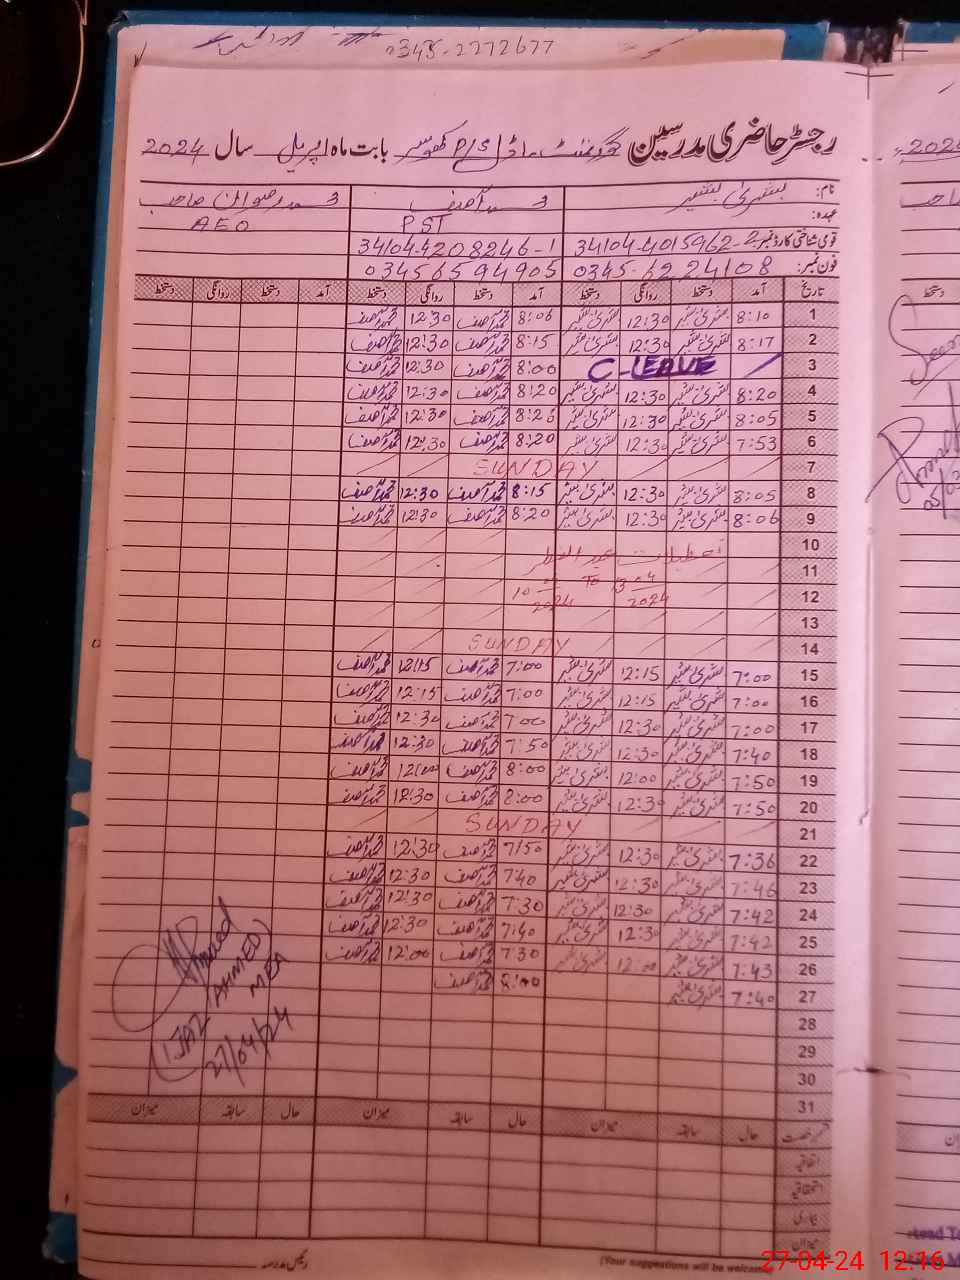 0345-2772677
رجسٹر حاضری مدرسین گورنمنٹ ماڈل P/S بابت ماہ اپریل سال 2024
نام: بشریٰ بشیر محمد آصف محمد رضوان صاحب
عہدہ: PST AEO
قومی شناختی کارڈ نمبر 34104-4015962-2 34104-4208246-1
فون نمبر: 0345-6224108 03456594905
تاریخ آمد دستخط روانگی دستخط آمد دستخط روانگی دستخط آمد دستخط روانگی دستخط
1 8:10 بشریٰ بشیر 12:30 بشریٰ بشیر 8:06 محمد آصف 12:30 محمد آصف
2 8:17 بشریٰ بشیر 12:30 بشریٰ بشیر 8:15 محمد آصف 12:30 محمد آصف
3 C-LEAVE 8:00 محمد آصف 12:30 محمد آصف
4 8:20 بشریٰ بشیر 12:30 بشریٰ بشیر 8:20 محمد آصف 12:30 محمد آصف
5 8:05 بشریٰ بشیر 12:30 بشریٰ بشیر محمد آصف 12:30 محمد آصف
6 7:53 بشریٰ بشیر 12:30 بشریٰ بشیر 8:20 محمد آصف 12:30 محمد آصف
7 SUNDAY
8 8:05 بشریٰ بشیر 12:30 بشریٰ بشیر 8:15 محمد آصف 12:30 محمد آصف
9 8:06 بشریٰ بشیر 12:30 بشریٰ بشیر 8:20 محمد آصف 12:30 محمد آصف
10 تعطیلات عید الفطر
11
12 10 2024 To 13 04 2024
13
14 SUNDAY
15 7:00 بشریٰ بشیر 12:15 بشریٰ بشیر 7:00 محمد آصف 12:15 محمد آصف
16 7:00 بشریٰ بشیر 12:15 بشریٰ بشیر 7:00 محمد آصف 12:15 محمد آصف
17 7:00 بشریٰ بشیر 12:30 بشریٰ بشیر 7:00 محمد آصف 12:30 محمد آصف
18 7:40 بشریٰ بشیر 12:30 بشریٰ بشیر 7:50 محمد آصف 12:30 محمد آصف
19 7:50 بشریٰ بشیر 12:00 بشریٰ بشیر 8:00 محمد آصف 12:00 محمد آصف
20 7:50 بشریٰ بشیر 12:30 بشریٰ بشیر 8:00 محمد آصف 12:30 محمد آصف
21 SUNDAY
22 7:36 بشریٰ بشیر 12:30 بشریٰ بشیر 7:50 محمد آصف 12:30 محمد آصف
23 7:46 بشریٰ بشیر 12:30 بشریٰ بشیر 7:40 محمد آصف 12:30 محمد آصف
24 7:42 بشریٰ بشیر 12:30 بشریٰ بشیر 7:30 محمد آصف 12:30 محمد آصف
25 7:42 بشریٰ بشیر 12:30 بشریٰ بشیر 7:40 محمد آصف 12:30 محمد آصف
26 7:43 بشریٰ بشیر 12:00 بشریٰ بشیر 7:30 محمد آصف 12:00 محمد آصف
27 7:40 بشریٰ بشیر 8:00 محمد آصف
28
29
30
31
(IJAZ AHMED)
MEA
27/04/24
قسم رخصت حال سابقہ میزان حال سابقہ میزان حال سابقہ میزان
اتفاقیہ
استحقاقیہ
بیماری
میزان
رئیس مدرسہ
(Your suggestions will be welcome
27-04-24 12:16